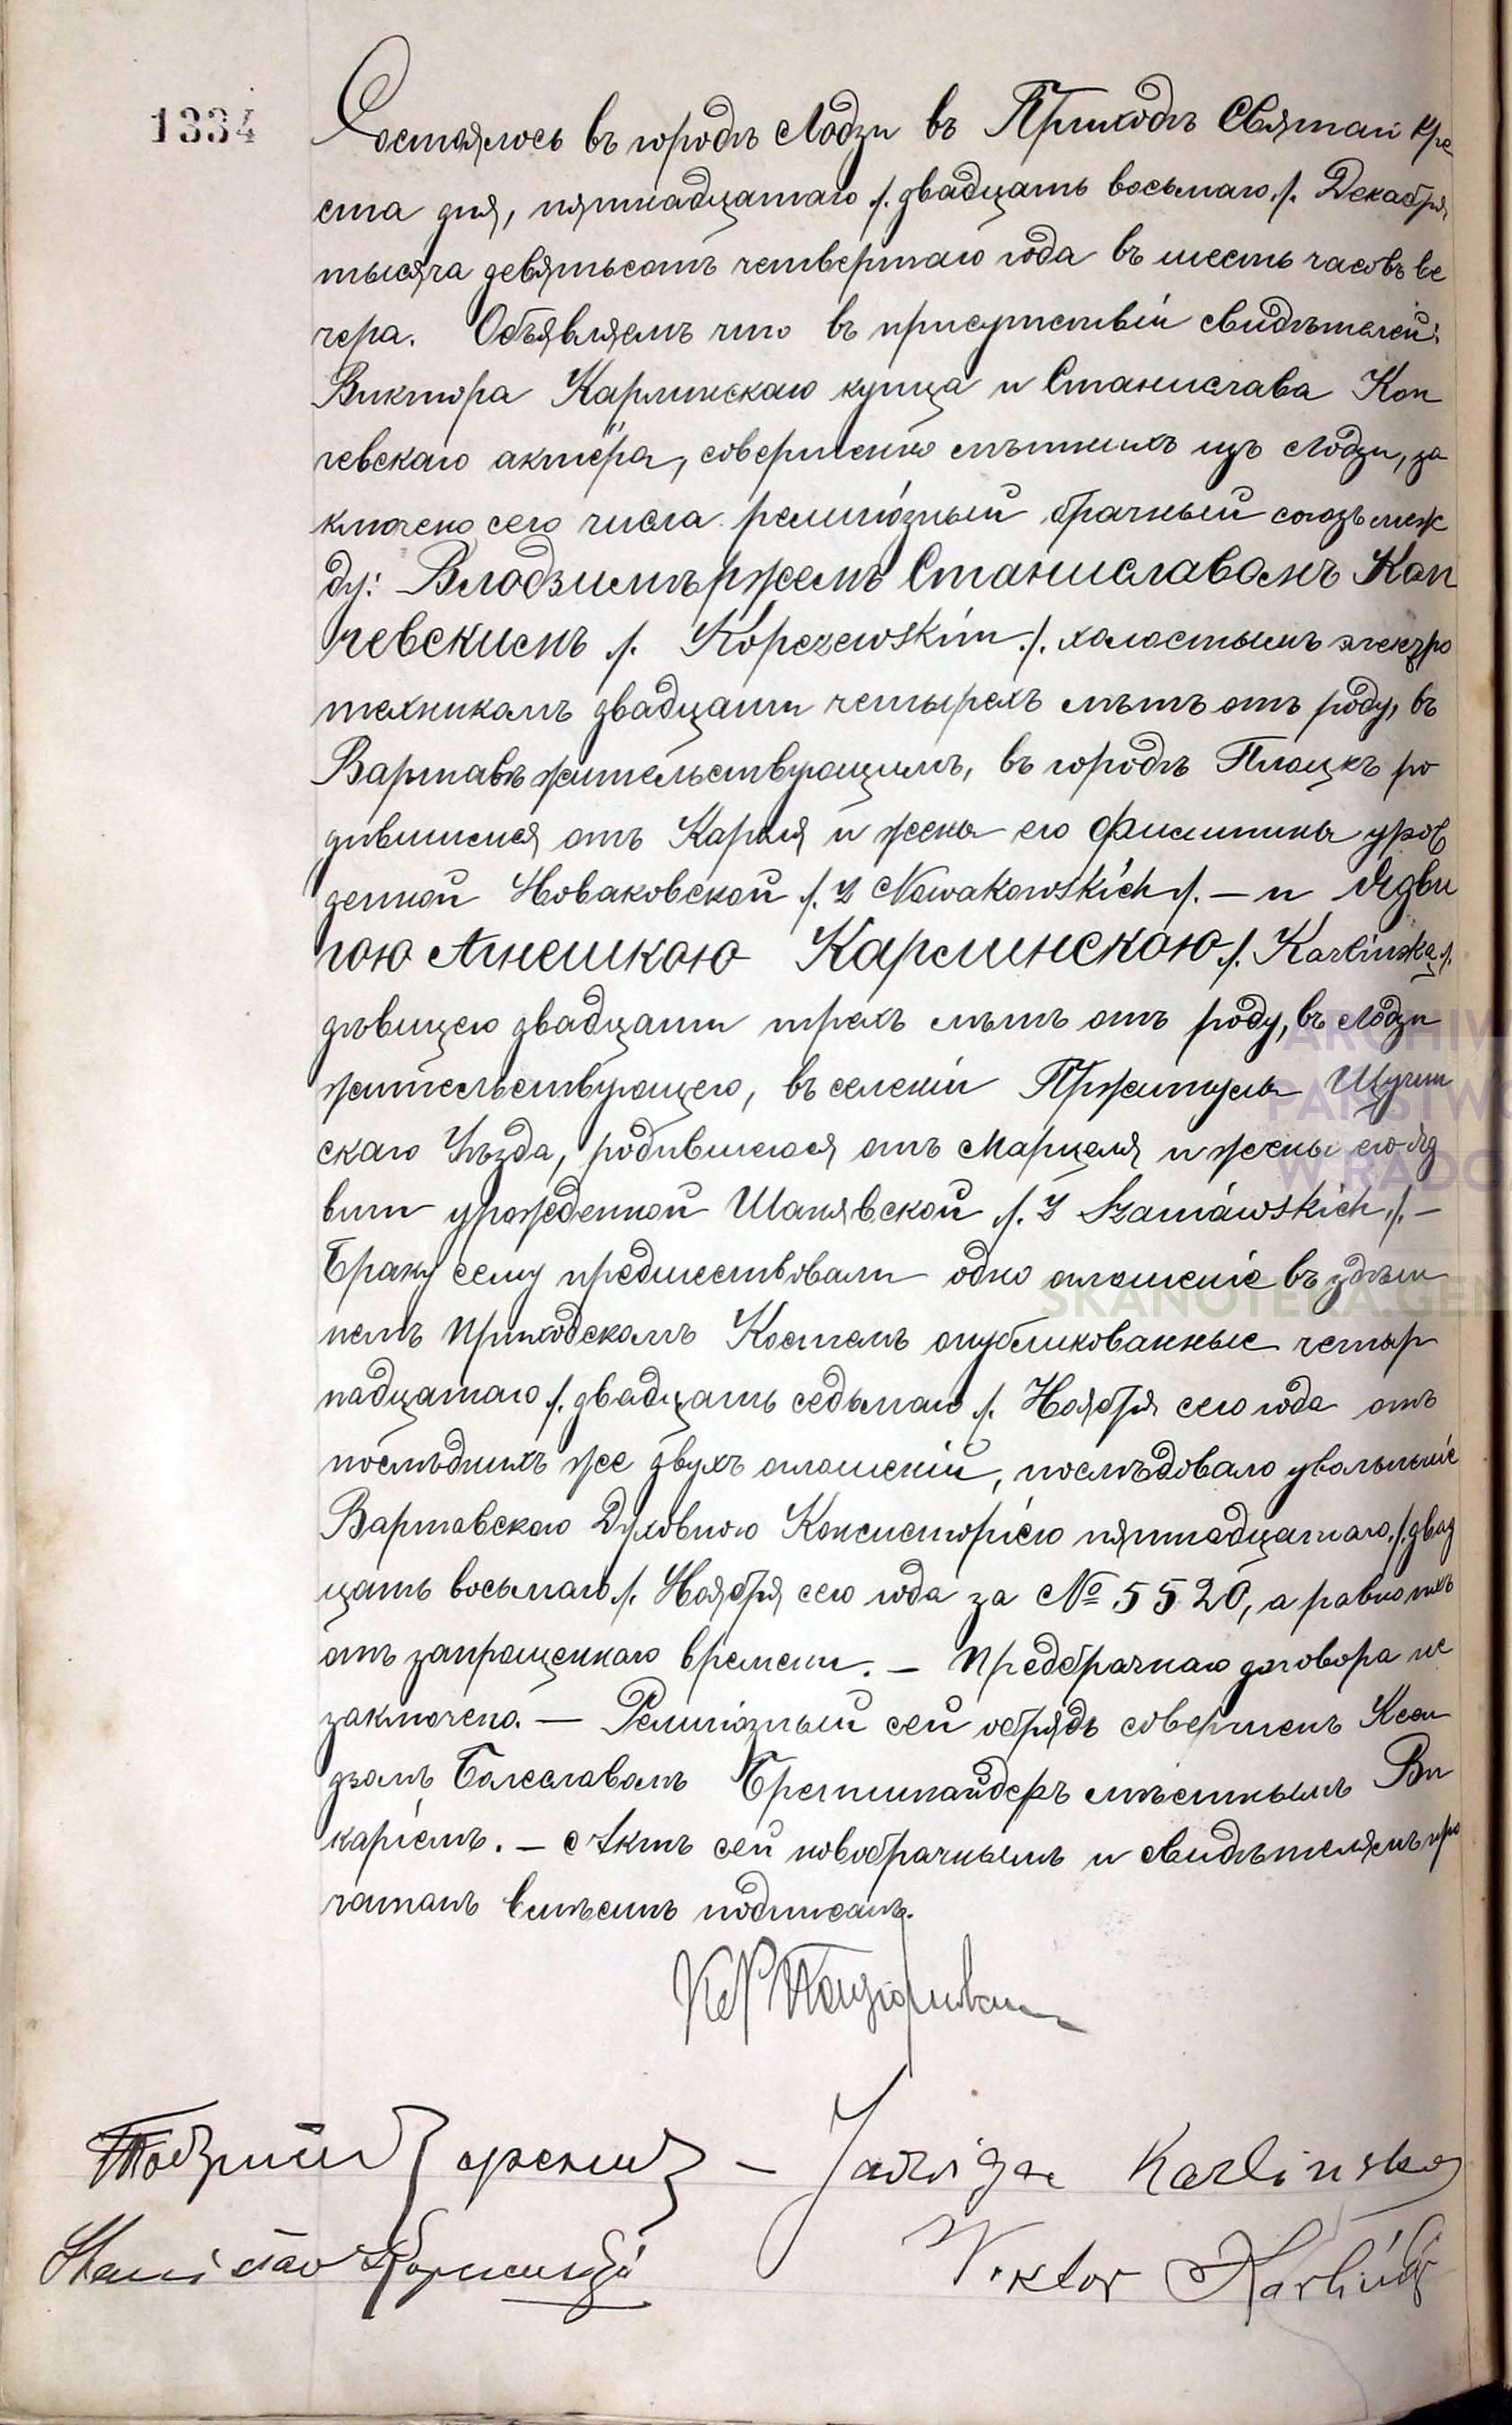 1334
Состоялось въ городѣ Лодзи въ Приходѣ Святаго Кре
ста дня, пятнадцатаго /. двадцать восьмаго /. Декабря
тысяча девятьсотъ четвертаго года въ шесть часовъ ве
чера. Объявляемъ что въ присутствіи свидѣтелей:
Виктора Карлинскаго купца и Станислава Коп
чевскаго актёра, совершеннолѣтнихъ изъ Лодзи, за
ключено сего числа религіозный брачный союзъ меж
ду: Влодзимѣржемъ Станиславомъ Коп
чевскимъ /. Kopczewskim /. холостымъ электро
техникомъ двадцати четырехъ лѣтъ отъ роду, въ
Варшавѣ жительствующимъ, въ городѣ Плоцкѣ ро
дившимся отъ Кароля и жены его Филипины урож
денной Новаковской /. z Nowakowskich /. — и Ядви
гою Агнешкою Карлинскою /. Karlinską /.
дѣвицею двадцати трехъ лѣтъ отъ роду, въ Лодзи
жительствующею, въ селеніи Пржитулы Щучин
скаго Уѣзда, родившеюся отъ Марцеля и жены его Яд
виги урожденной Шанявской /. z Szaniawskich /. —
Браку сему предшествовали одно оглашеніе въ здѣш
немъ Приходскомъ Костелѣ опубликованные четыр
надцатаго /. двадцать седьмаго /. Ноября сего года отъ
послѣднихъ же двухъ оглашеній, послѣдовало увольненіе
Варшавскою Духовною Консисторіею пятнадцатаго /. двад
цать восьмаго /. Ноября сего года за № 5520, а равно
отъ запрещеннаго времени. — Предбрачнаго договора не
заключено. — Религіозный сей обрядъ совершенъ Ксен
дзомъ Болеславомъ мѣстнымъ Ви
каріемъ. — Актъ сей новобрачнымъ и свидѣтелямъ про
читанъ подписанъ.
Jadwiga Karlinska
Stanisław Kopczewski
Wiktor Karliński
ARCHIW
PAŃSTWO
W RADO
SKANOTEKA.GEN